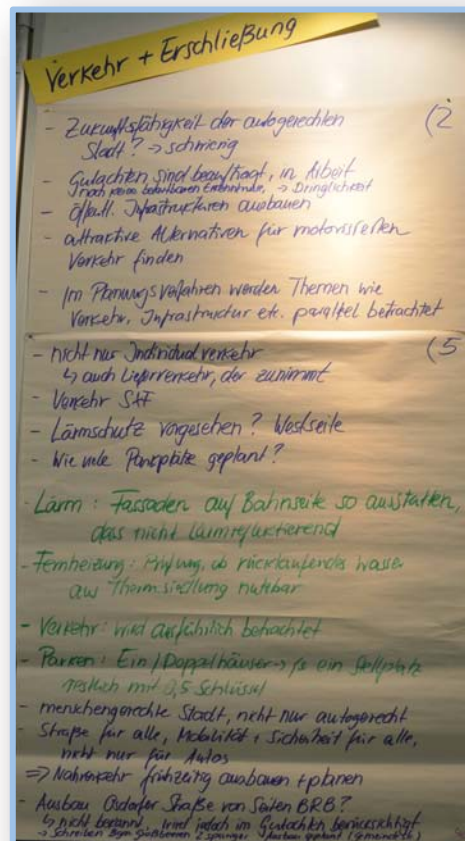 Verkehr + Erschließung
- Zukunftsfähigkeit der autogerechten (2
Stadt? → schwierig
- Gutachten sind beauftragt, in Arbeit
noch keine belastbaren Ergebnisse, → Dringlichkeit
- Öffentl. Infrastrukturen ausbauen
- attraktive Alternativen für motorisierten
Verkehr finden
- Im Planungsverfahren werden Themen wie
Verkehr, Infrastruktur etc. parallel betrachtet
- nicht nur Individualverkehr (5
↳ auch Lieferverkehr, der zunimmt
- Verkehr SXF
- Lärmschutz vorgesehen? Westseite
- Wie viele Parkplätze geplant?
- Lärm: Fassaden auf Bahnseite so ausstatten,
dass nicht lärmreflektierend
- Fernheizung: Prüfung, ob rücklaufendes Wasser
aus Thermsiedlung nutzbar
- Verkehr: wird ausführlich betrachtet
- Parken: Ein/Doppelhäuser → je ein Stellplatz
restlich mit 0,5 Schlüssel
- menschengerechte Stadt, nicht nur autogerecht
- Straße für alle, Mobilität + Sicherheit für alle,
nicht nur für Autos
⇒ Nahverkehr frühzeitig ausbauen + planen
- Ausbau Osdorfer Straße von Seiten BRB?
↳ nicht bekannt, wird jedoch im Gutachten berücksichtigt
→ Schreiben Bgm Großbeeren 2 spuriger Ausbau geplant (Gemeinde)